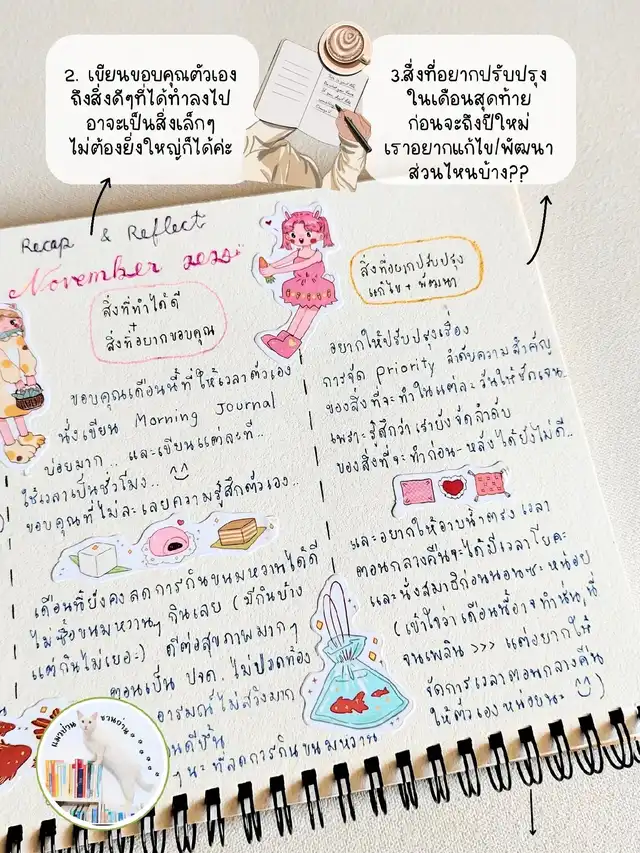 2. เขียนขอบคุณตัวเอง
ถึงสิ่งดีๆที่ได้ทำลงไป
อาจะเป็นสิ่งเล็กๆ
ไม่ต้องยิ่งใหญ่ก็ได้ค่ะ
3.สิ่งที่อยากปรับปรุง
ในเดือนสุดท้าย
ก่อนจะถึงปีใหม่
เราอยากแก้ไข/พัฒนา
ส่วนไหนบ้าง??
Recap & Reflect
November
สิ่งที่ทำได้ดี
+
สิ่งที่อยากขอบคุณ
ขอบคุณเดือนนี้ที่ให้เวลาตัวเอง
นั่งเขียน Morning Journal
บ่อยมาก... และเขียนแต่ละที..
ใช้เวลาเป็นชั่วโมง..
ขอบคุณที่ไม่ละเลยความรู้สึกตัวเอง..
เดือนนี้ยังคงลดการกินขนมหวานได้ดี
ไม่ซื้อขนมหวานๆ กินเลย (มีกินบ้าง
แต่กินไม่เยอะ:) ดีต่อสุขภาพมากๆ
ตอนเป็น ปจด. ไม่ปวดท้อง
อารมณ์ไม่สวิงมาก
ที่ลดการกินขนมหวาน
สิ่งที่อยากปรับปรุง
แก้ไข + พัฒนา
อยากให้ปรับปรุงเรื่อง
การจัด priority ลำดับความสำคัญ
ของสิ่งที่จะทำในแต่ละวันให้ชัดเจน..
เพราะรู้สึกว่าเรายังจัดลำดับ
ของสิ่งที่จะทำก่อน-หลังได้ยังไม่ดี..
และอยากให้อาบน้ำตรงเวลา
ตอนกลางคืนจะได้มีเวลาโยคะ
และนั่งสมาธิก่อนนอนซะหน่อย
(เข้าใจว่าเดือนนี้อาจทำนั่น,นี่
จนเพลิน >>> แต่อยากให้
จัดการเวลาตอนกลางคืน
ให้ตัวเองหน่อยนะ)
แมวบ้าน
ชวนอ่าน